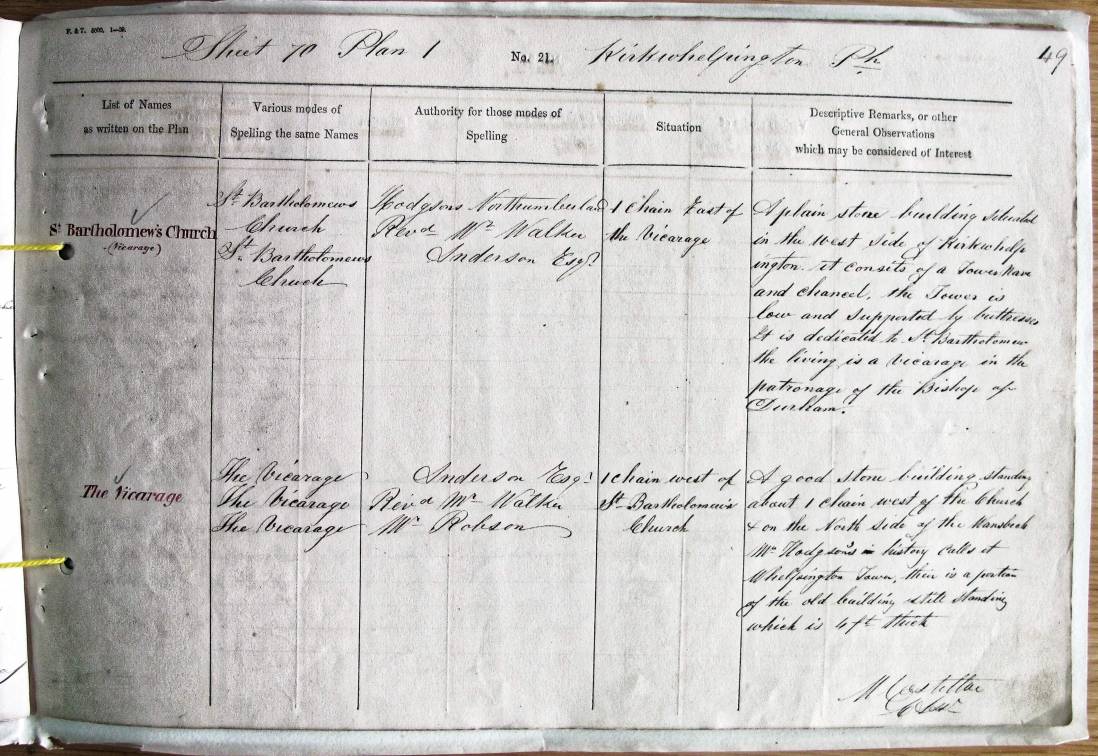 F. & T. 5000. 1—59.
Sheet 70 Plan 1 No. 21. Kirkwhelpington Ph 49
List of Names
as written on the Plan
Various modes of
Spelling the same Names
Authority for those modes of
Spelling
Situation
Descriptive Remarks, or other
General Observations
which may be considered of Interest
St Bartholomew's Church
(Vicarage)
St Bartholomews
Church
St Bartholomews
Church
Hodgsons Northumberland
Revd Mr Walker
Anderson Esqr
1 Chain East of
the Vicarage
A plain stone building situated
in the west side of Kirkwhelp
ington. it consits of a Tower Nave
and chancel, the Tower is
low and supported by buttresses
It is dedicated to St Bartholomew
the living is a vicarage in the
patronage of the Bishop of
Durham.
The Vicarage
The Vicarage
The Vicarage
The Vicarage
Anderson Esqr
Revd Mr Walker
Mr Robson
1 chain west of
St Bartholomew's
Church
A good stone building standing
about 1 chain west of the Church
& on the North side of the Wansbeck
Mr Hodgson's in history calls it
Whelpington Tower, their is a portion
of the old building still standing
which is 4 ft thick